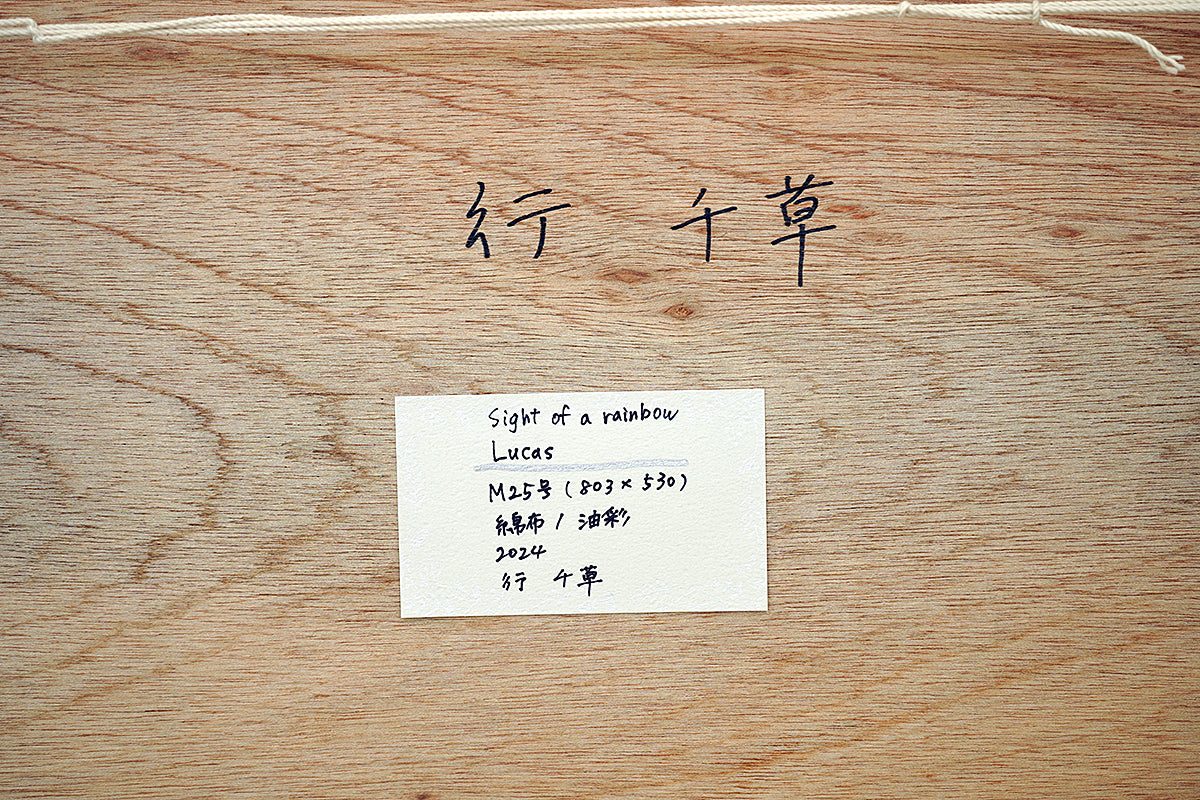 行 千草
Sight of a rainbow
Lucas
M25号(803×530)
綿布 / 油彩
2024
行 千草